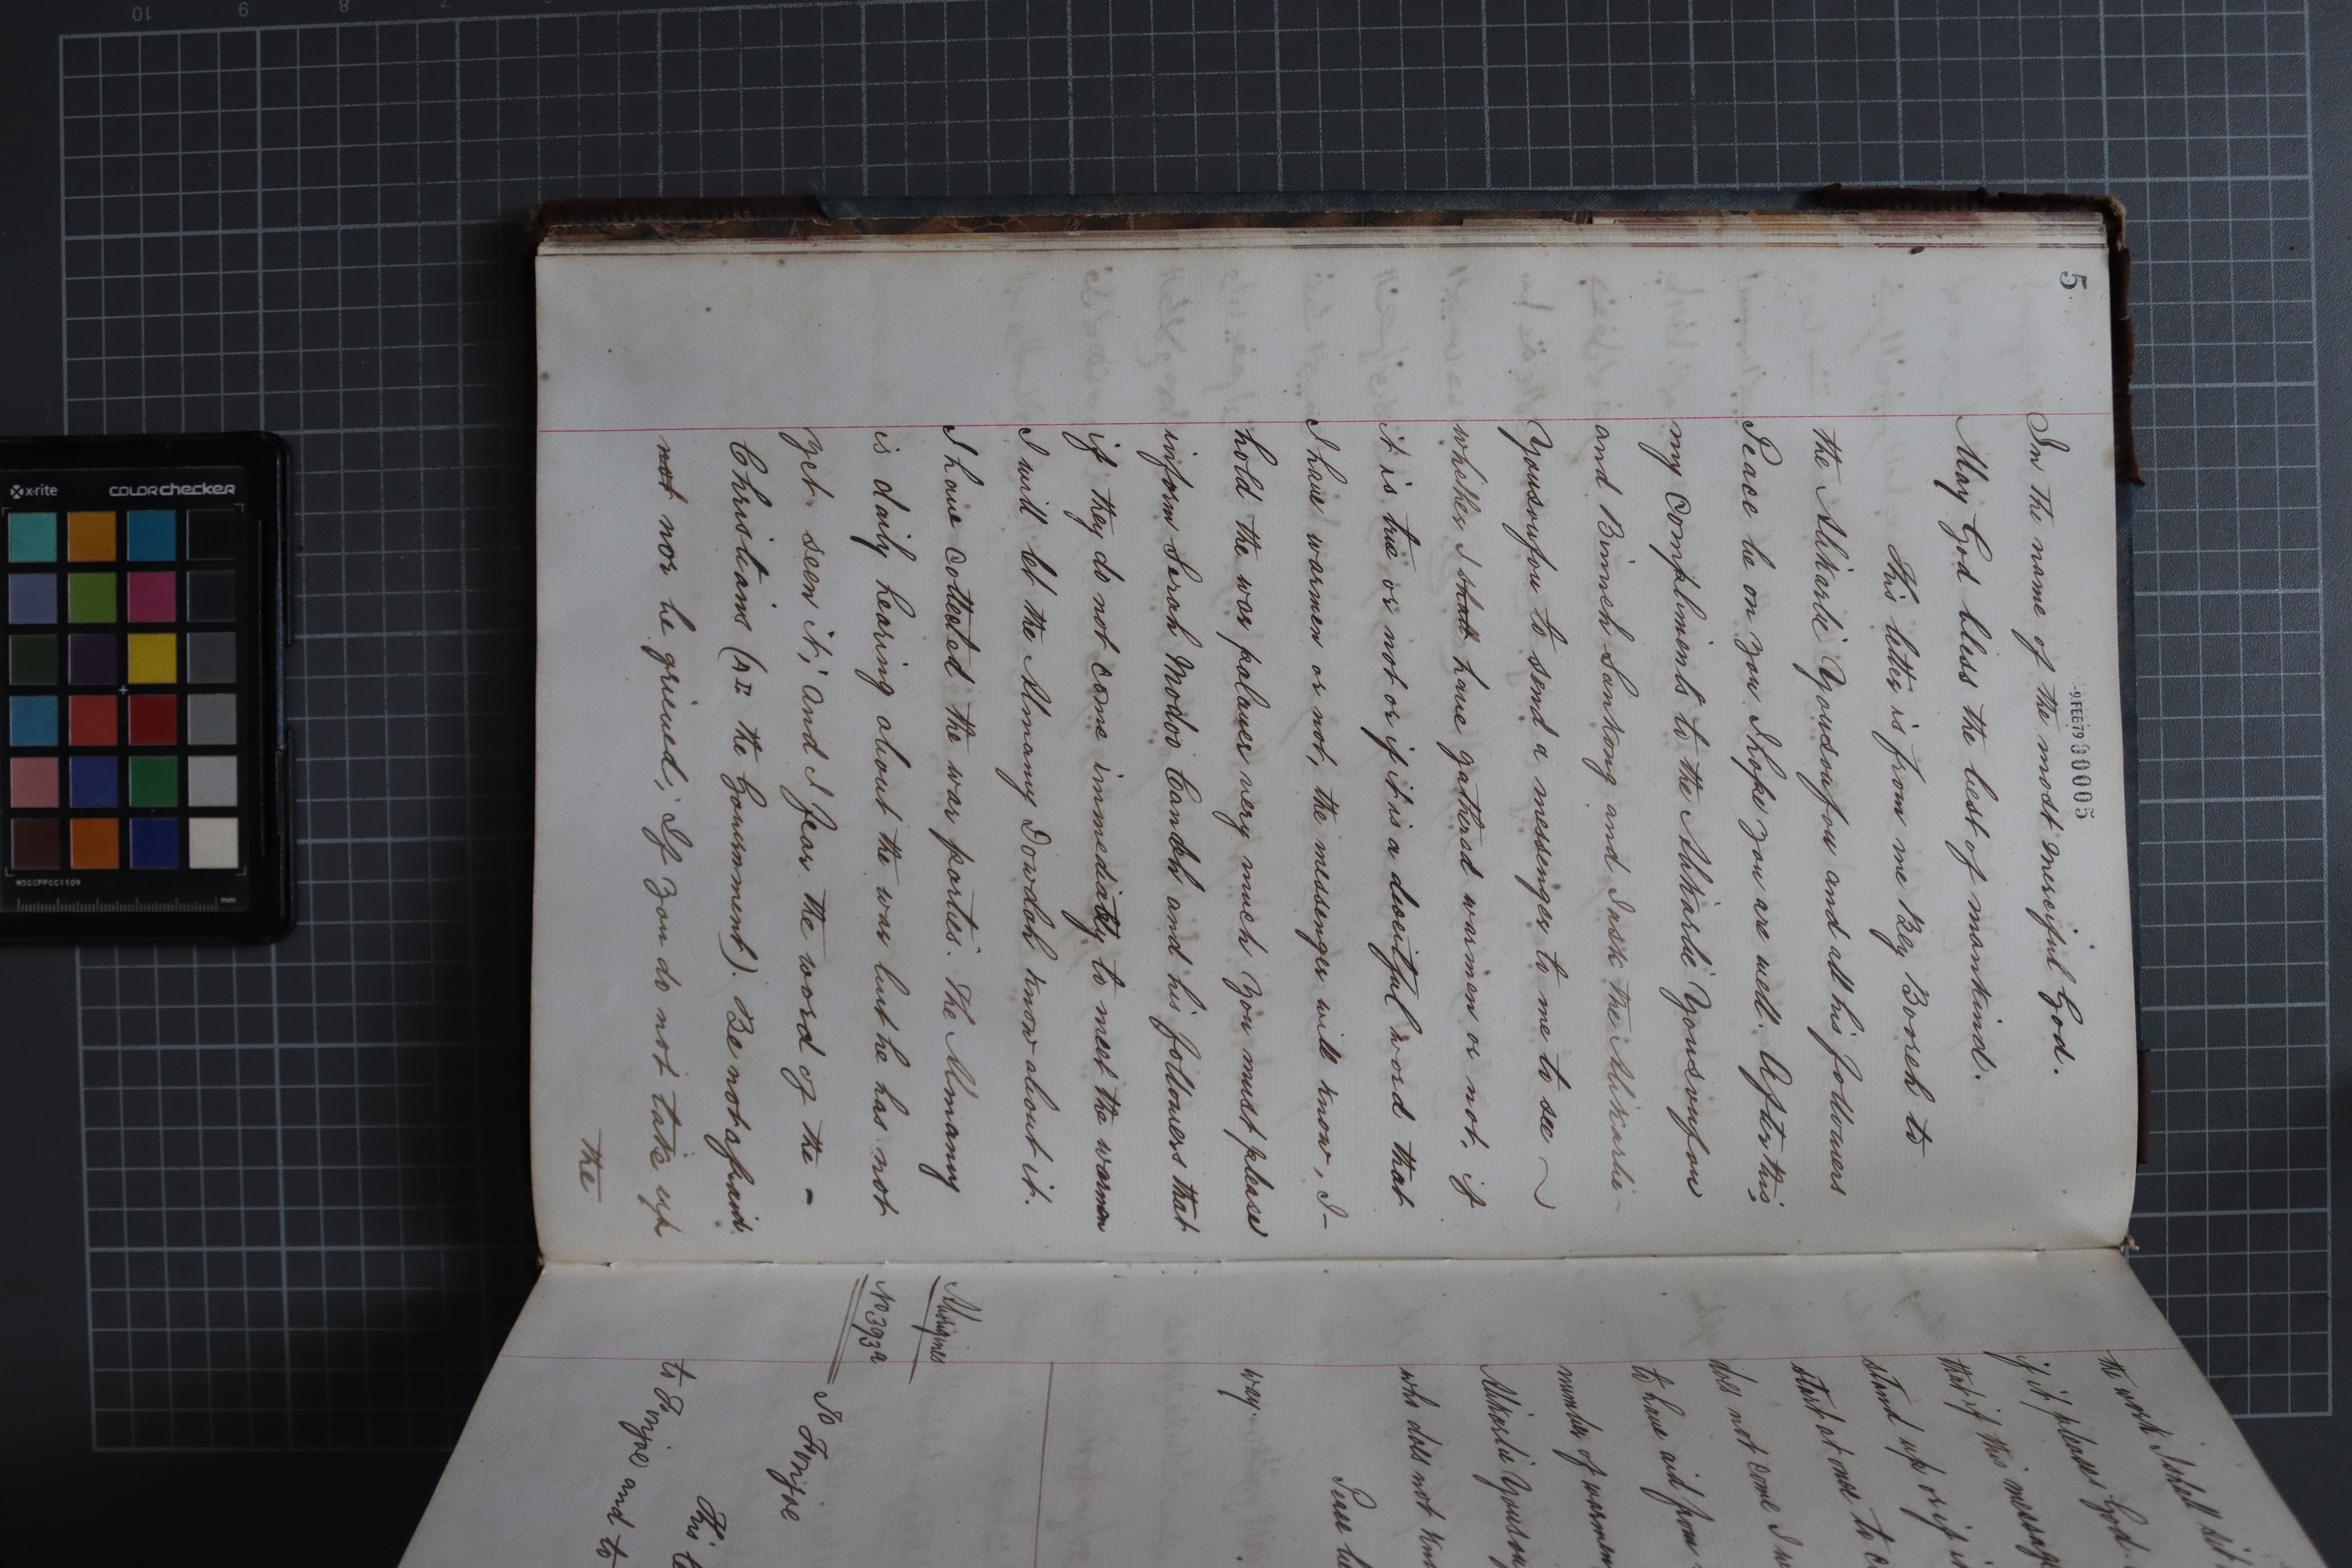 5
-9 FEB 79 00005
In the name of the most merciful God.
May God bless the best of mankind.
This letter is from me Bey Boreh to
the Alikarlie Yousoufou and all his followers
Peace be on you I hope you are well. After this,
my compliments to the Alikarlie Yousoufou
and Binneh Sankong and I ask the Alikarlie -
Yousoufou to send a messenger to me to see
whether I shall have gathered warmen or not, if
it is true or not or if it is a deceitful word that
I have warmen or not, the messenger will know, I -
hold the war palaver very much you must please
inform Sorah Modoo Candeh and his followers that
if they do not come immediately to meet the warmen
I will let the Almany Dowdah know about it.
I have collected the war parties. The Almamy
is daily hearing about the war but he has not
yet seen it; and I fear the word of the -
Christians (i.e. the Government). Be not afraid
not nor be grieved; If you do not take up
the
the work I shall
if it pleases God
that if this message
stand up or if
start at once to
does not come I
to have aid from
number of warmen
Alikarlie Yousou
who does not
way.
Peace be
Aborigines
No 393a
To Fonjoe
This
to Fonjoe and to
x-rite
colorchecker
MSCCPPCC1109
mm
10 9 8 7